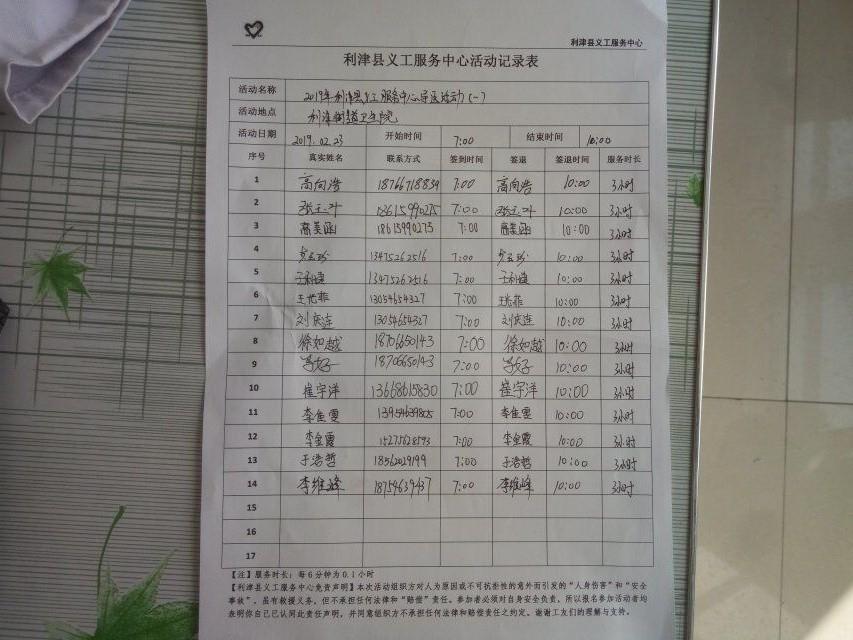 利津县义工服务中心
利津县义工服务中心活动记录表
活动名称 2019年利津县义工服务中心导医活动(一)
活动地点 利津街道卫生院
活动日期 2019.02.23 开始时间 7:00 结束时间 10:00
序号 真实姓名 联系方式 签到时间 签退 签退时间 服务时长
1 高向浩 18766718839 7:00 高向浩 10:00 3小时
2 7:00 10:00 3小时
3 18615990275 7:00 10:00 3小时
4 13475262516 7:00 10:00 3小时
5 13475262516 7:00 10:00 3小时
6 王光菲 13054654327 7:00 王光菲 10:00 3小时
7 刘庆连 13054654327 7:00 刘庆连 10:00 3小时
8 徐如越 18706650143 7:00 徐如越 10:00 3小时
9 18706650143 7:00 10:00 3小时
10 崔宇洋 13668615830 7:00 崔宇洋 10:00 3小时
11 李佳雯 7:00 李佳雯 10:00 3小时
12 李金霞 7:00 李金霞 10:00 3小时
13 于浩哲 18562029199 7:00 于浩哲 10:00 3小时
14 李维峰 18754639437 7:00 李维峰 10:00 3小时
15
16
17
【注】服务时长：每6分钟为0.1小时
【利津县义工服务中心免责声明】本次活动组织方对人为原因或不可抗拒性的意外而引发的“人身伤害”和“安全
事故”，虽有救援义务，但不承担任何法律和“赔偿”责任。参加者必须对自身安全负责，所以报名参加活动者均
表明你自己已认同此责任声明，并同意组织方不承担任何法律和赔偿责任之约定。谢谢工友们的理解与支持。